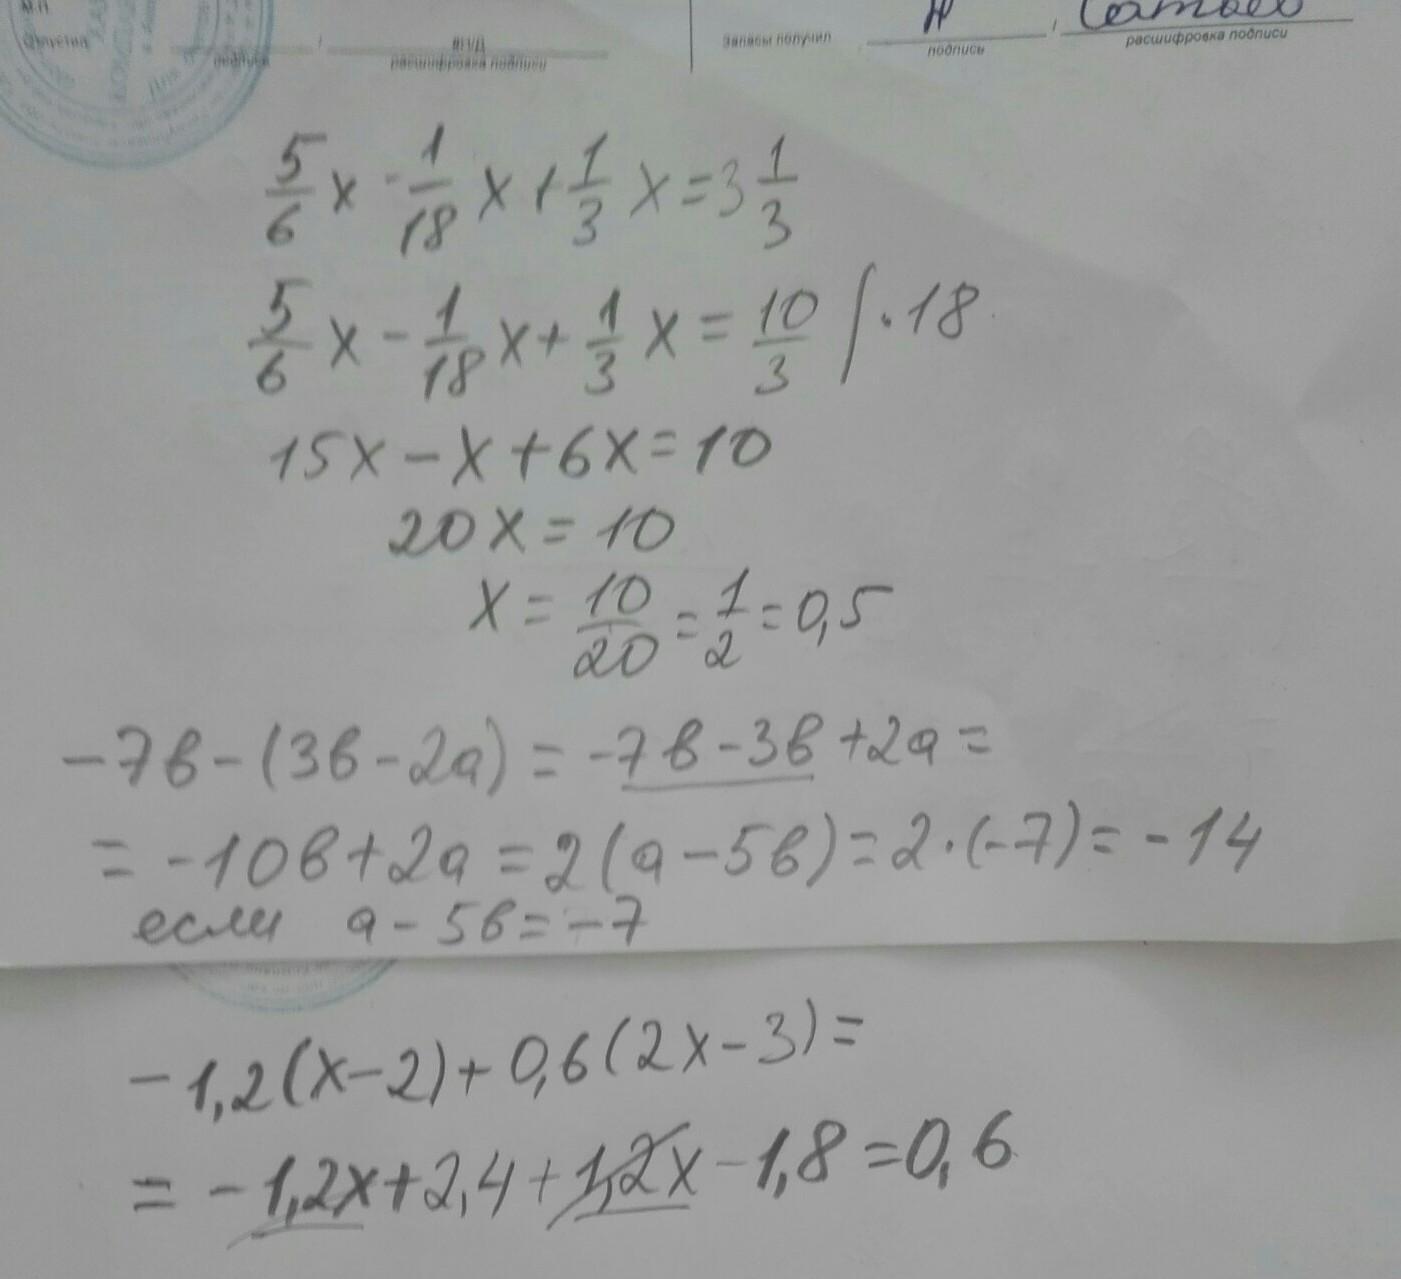 подпись
расшифровка подписи
Запасы получил
подпись
расшифровка подписи
5/6 x - 1/18 x + 1/3 x = 3 1/3
5/6 x - 1/18 x + 1/3 x = 10/3 | · 18
15x - x + 6x = 10
20x = 10
x = 10/20 = 1/2 = 0,5
-7в - (3в - 2а) = -7в - 3в + 2а =
= -10в + 2а = 2(а - 5в) = 2 · (-7) = -14
если а - 5в = -7
-1,2(x - 2) + 0,6(2x - 3) =
= -1,2x + 2,4 + 1,2x - 1,8 = 0,6